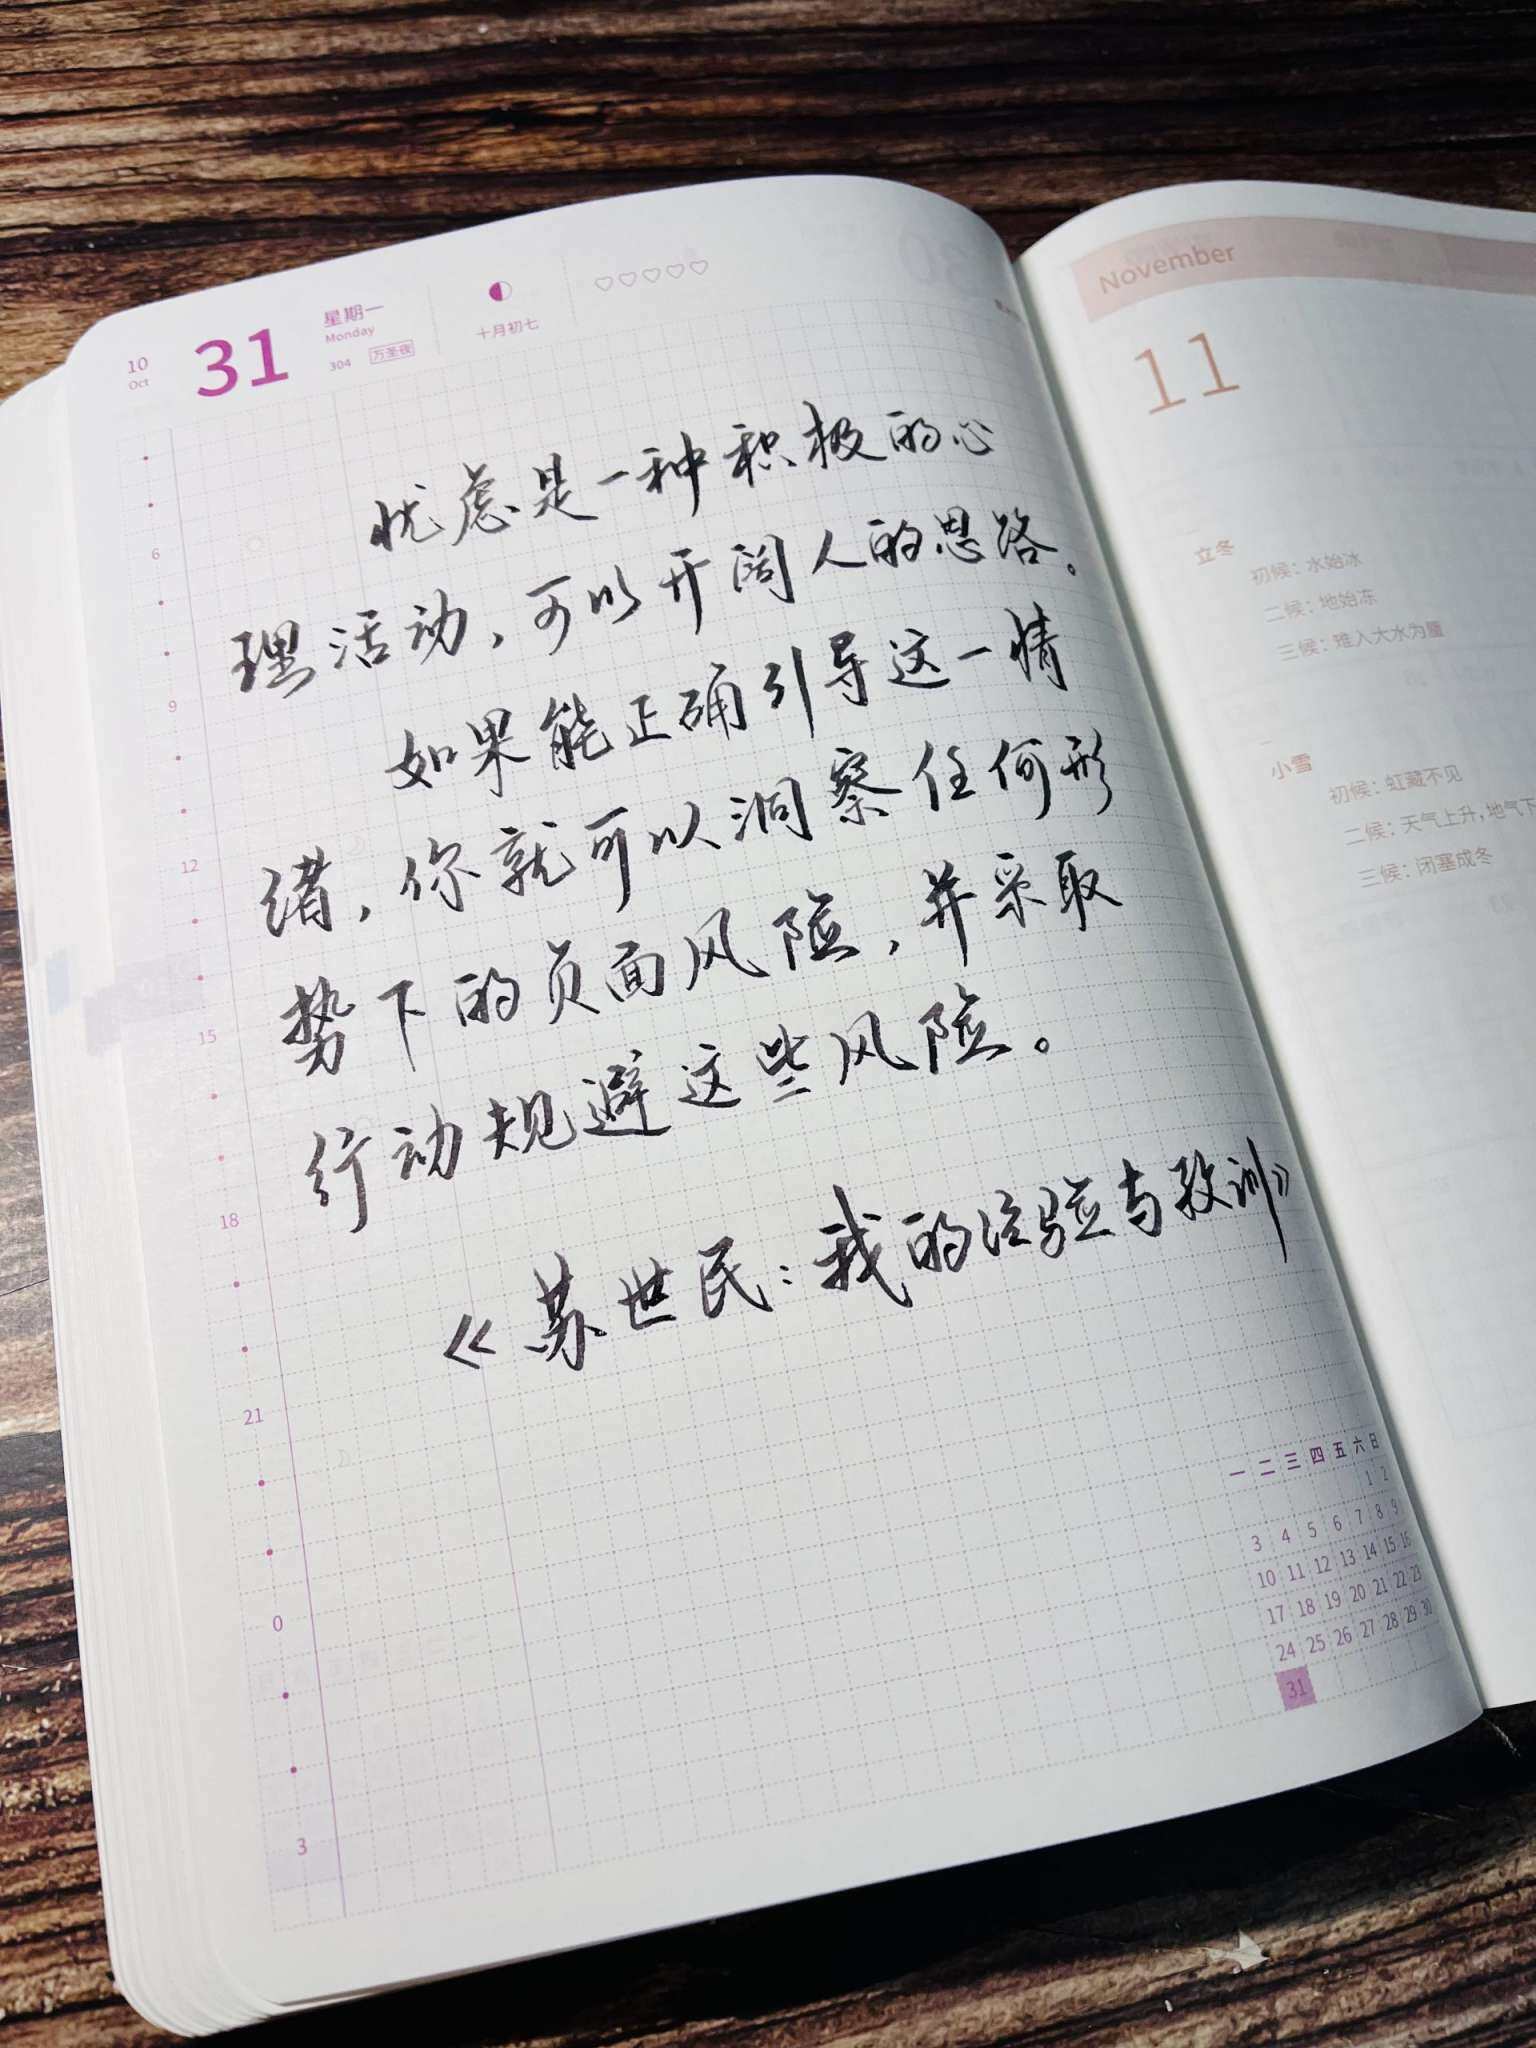 10
Oct
31
星期一
Monday
304 万圣夜
十月初七
忧虑是一种积极的心
理活动，可以开阔人的思路。
如果能正确引导这一情
绪，你就可以洞察任何形
势下的负面风险，并采取
行动规避这些风险。
《苏世民：我的经验与教训》
6
9
12
15
18
21
0
3
一 二 三 四 五 六 日
1 2
3 4 5 6 7 8 9
10 11 12 13 14 15 16
17 18 19 20 21 22 23
24 25 26 27 28 29 30
31
November
11
立冬
初候：水始冰
二候：地始冻
三候：雉入大水为蜃
小雪
初候：虹藏不见
二候：天气上升，地气下
三候：闭塞成冬